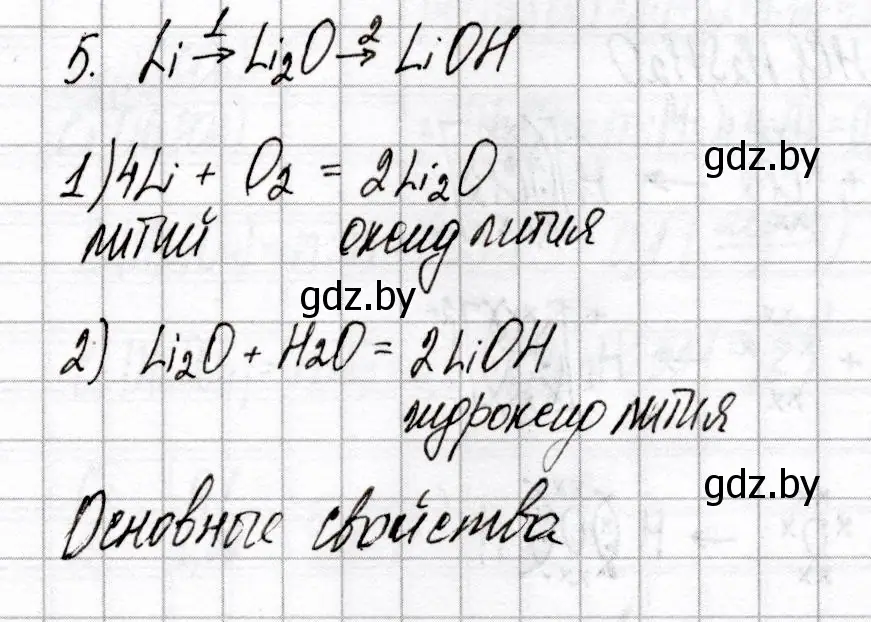 5. Li →¹ Li₂O →² LiOH
1) 4Li + O₂ = 2Li₂O
gdz.by
литий оксид лития
gdz.by
2) Li₂O + H₂O = 2LiOH
гидроксид лития
gdz.by
Основные свойства